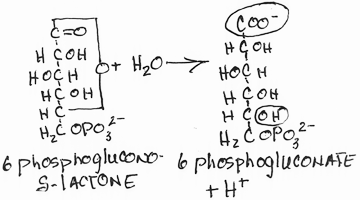 C=O
H C OH
HO C H
H C OH
H C
H₂C OPO₃²⁻
O + H₂O →
COO⁻
H C OH
HO C H
H C OH
H C OH
H₂C OPO₃²⁻
6 phosphoglucono-
δ-LACTONE
6 phosphogluconATE
+ H⁺